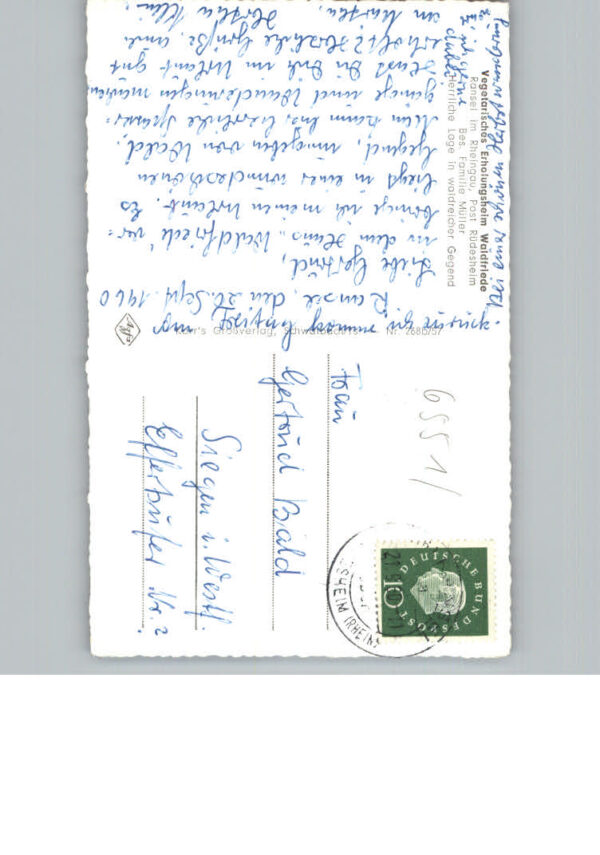 Vegetarisches Erholungsheim Waldfriede
Ransel im Rheingau, Post Rüdesheim
Bes. Familie Müller
Herrliche Lage in waldreicher Gegend
Ransel, den 20. Sept. 1960
Liebe Gertrud,
in dem Haus „Waldfriede" ver-
bringe ich meinen Urlaub. Es
liegt in einer wunderschönen
Gegend, umgeben von Wald.
Man kann hier herrliche Spazier-
gänge und Wanderungen machen
Hast Du Dich im Urlaub gut
erholt? Herzliche Grüße, auch
an
Kerr's Großverlag, Schwalbach/Ts. - Nr. 2880/57
Agfa
6551/
Frau
Gertrud Bald
Siegen i. Westf.
Effertsufer Nr. 2
DEUTSCHE BUNDESPOST
10
SHEIM (RHEIN)